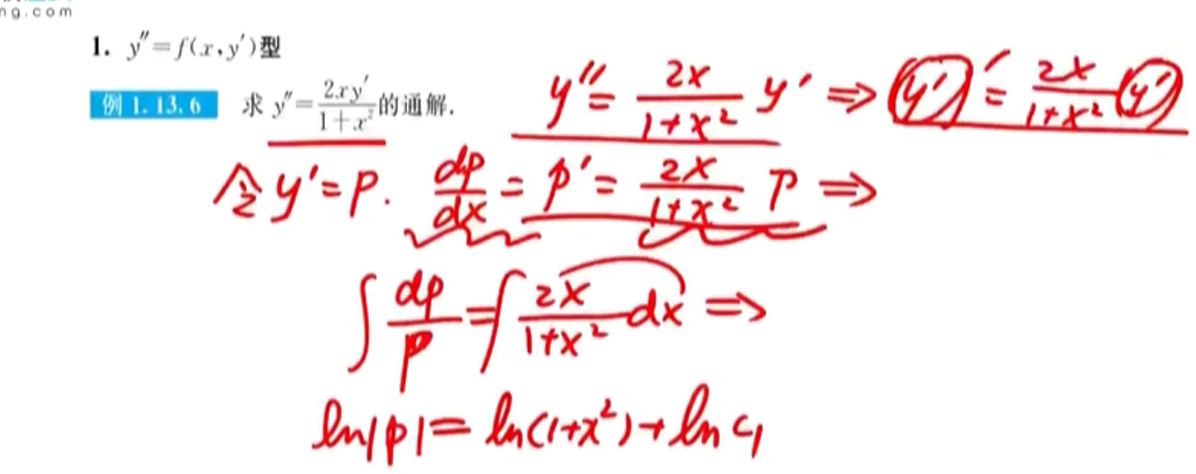 ng.com
1. y″=f(x,y′)型
例 1.13.6 求 y″=2xy′/(1+x²)的通解.
y″= 2x/(1+x²) y′ ⇒ (y′)′= 2x/(1+x²) (y′)
令 y′=p. dp/dx = p′= 2x/(1+x²) p ⇒
∫ dp/p = ∫ 2x/(1+x²) dx ⇒
ln|p|= ln(1+x²)+ln c₁